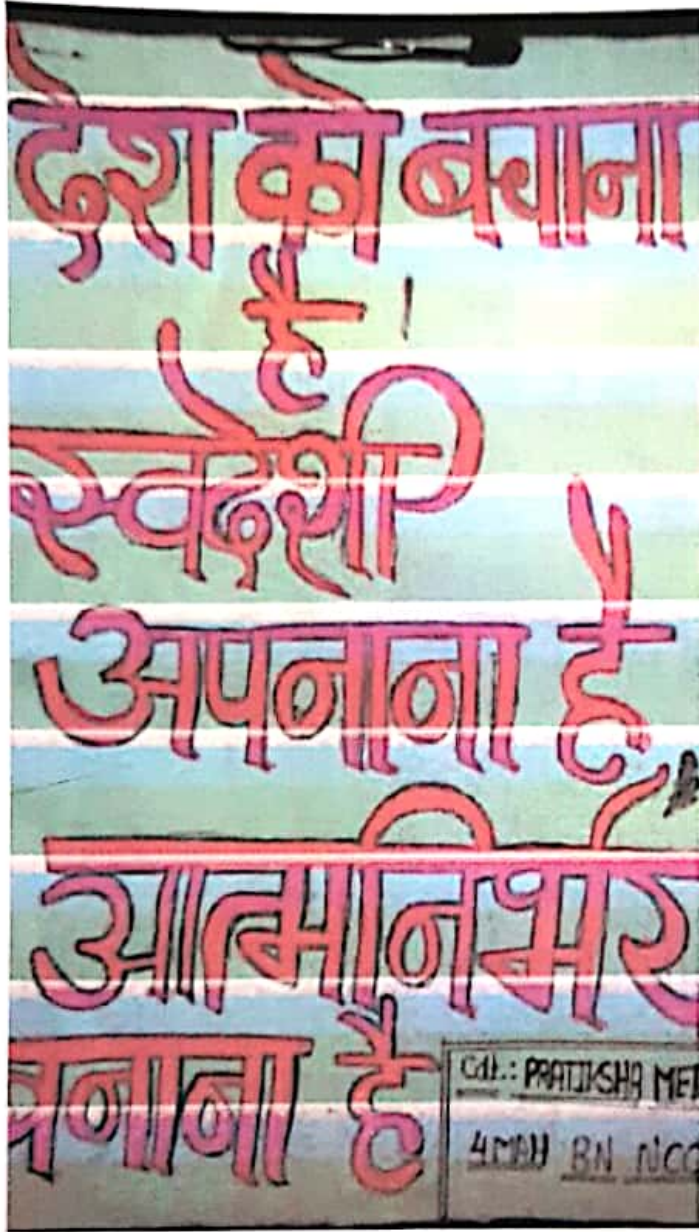 देश को बचाना
है।
स्वदेशी
अपनाना है,
आत्मनिर्भर
बनाना है
Cdt.: PRATIKSHA
4 MAH BN NCC